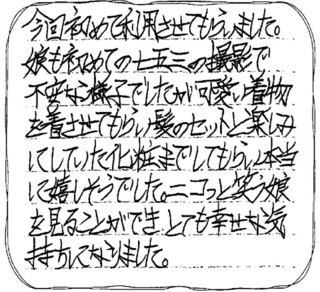 今回初めて利用させてもらいました。
娘も初めての七五三の撮影で
不安な様子でしたが可愛い着物
を着させてもらい髪のセットと楽しみ
にしていた化粧までしてもらい本当
に嬉しそうでした。ニコっと笑う娘
を見ることができ とても幸せな気
持ちになりました。